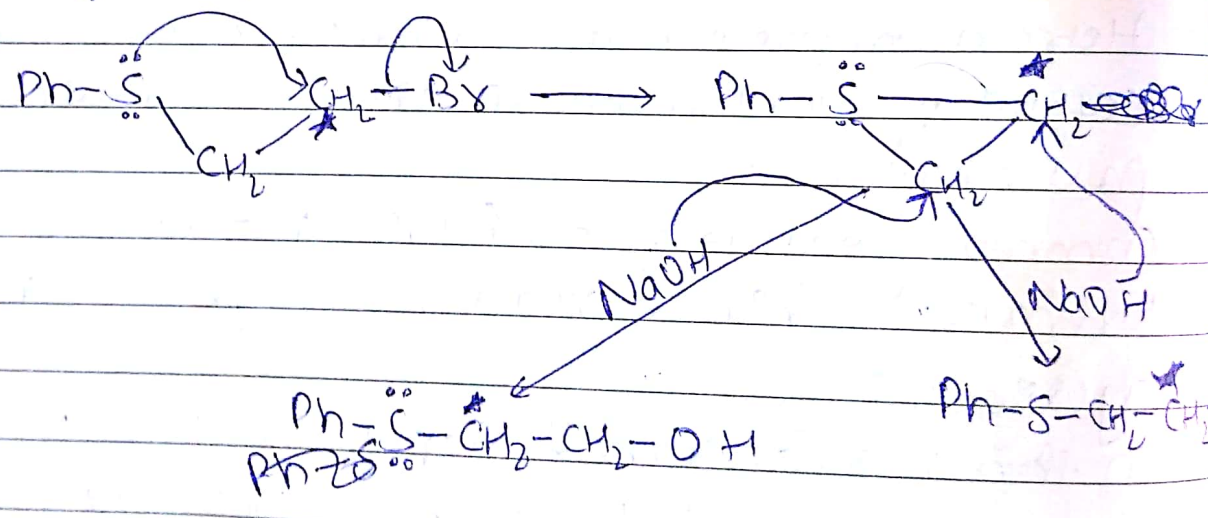 Ph-S CH₂-Br → Ph-S-CH₂
CH₂ CH₂
NaOH NaOH
Ph-S-CH₂-CH₂-OH Ph-S-CH₂-CH₂